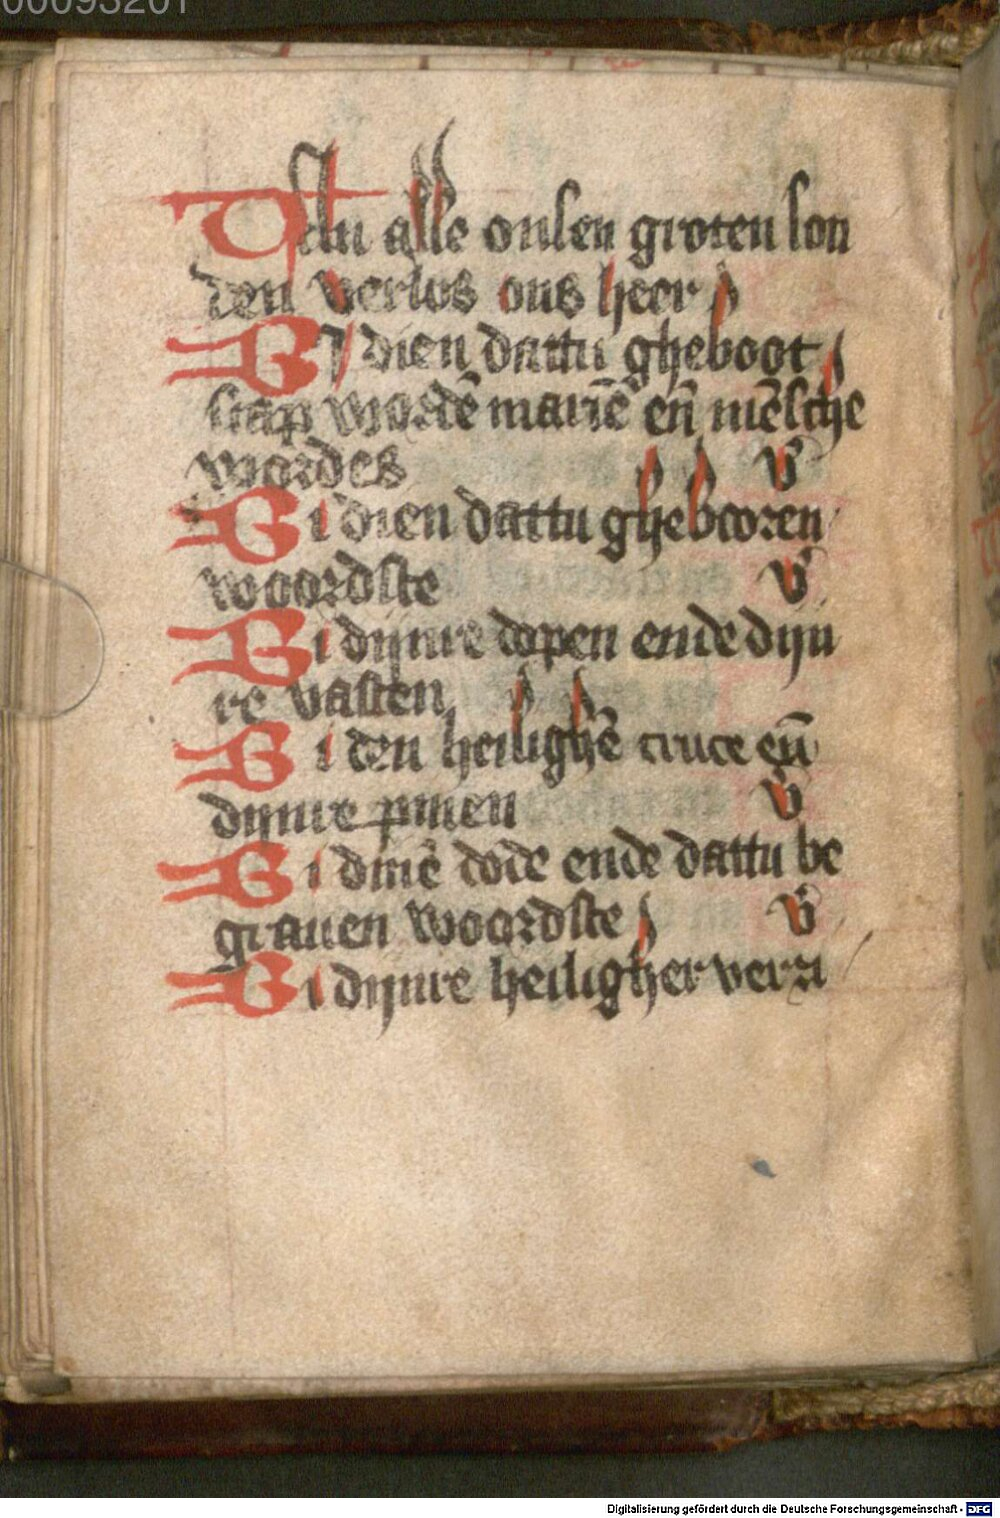 00093201
Uan alle onsen groten son
den verlos ons heer
Bi dien dattu gheboot
scap wordē mariē eñ mēsche
wordes v̄
Bi dien dattu ghebooren
woordste v̄
Bi dijnre dopen ende dijn
re vasten
Bi den heilighē cruce eñ
dijnre pinen v̄
Bi dinē dode ende dattu be
grauen woordste v̄
Bi dijnre heiligher verri
Digitalisierung gefördert durch die Deutsche Forschungsgemeinschaft - DFG